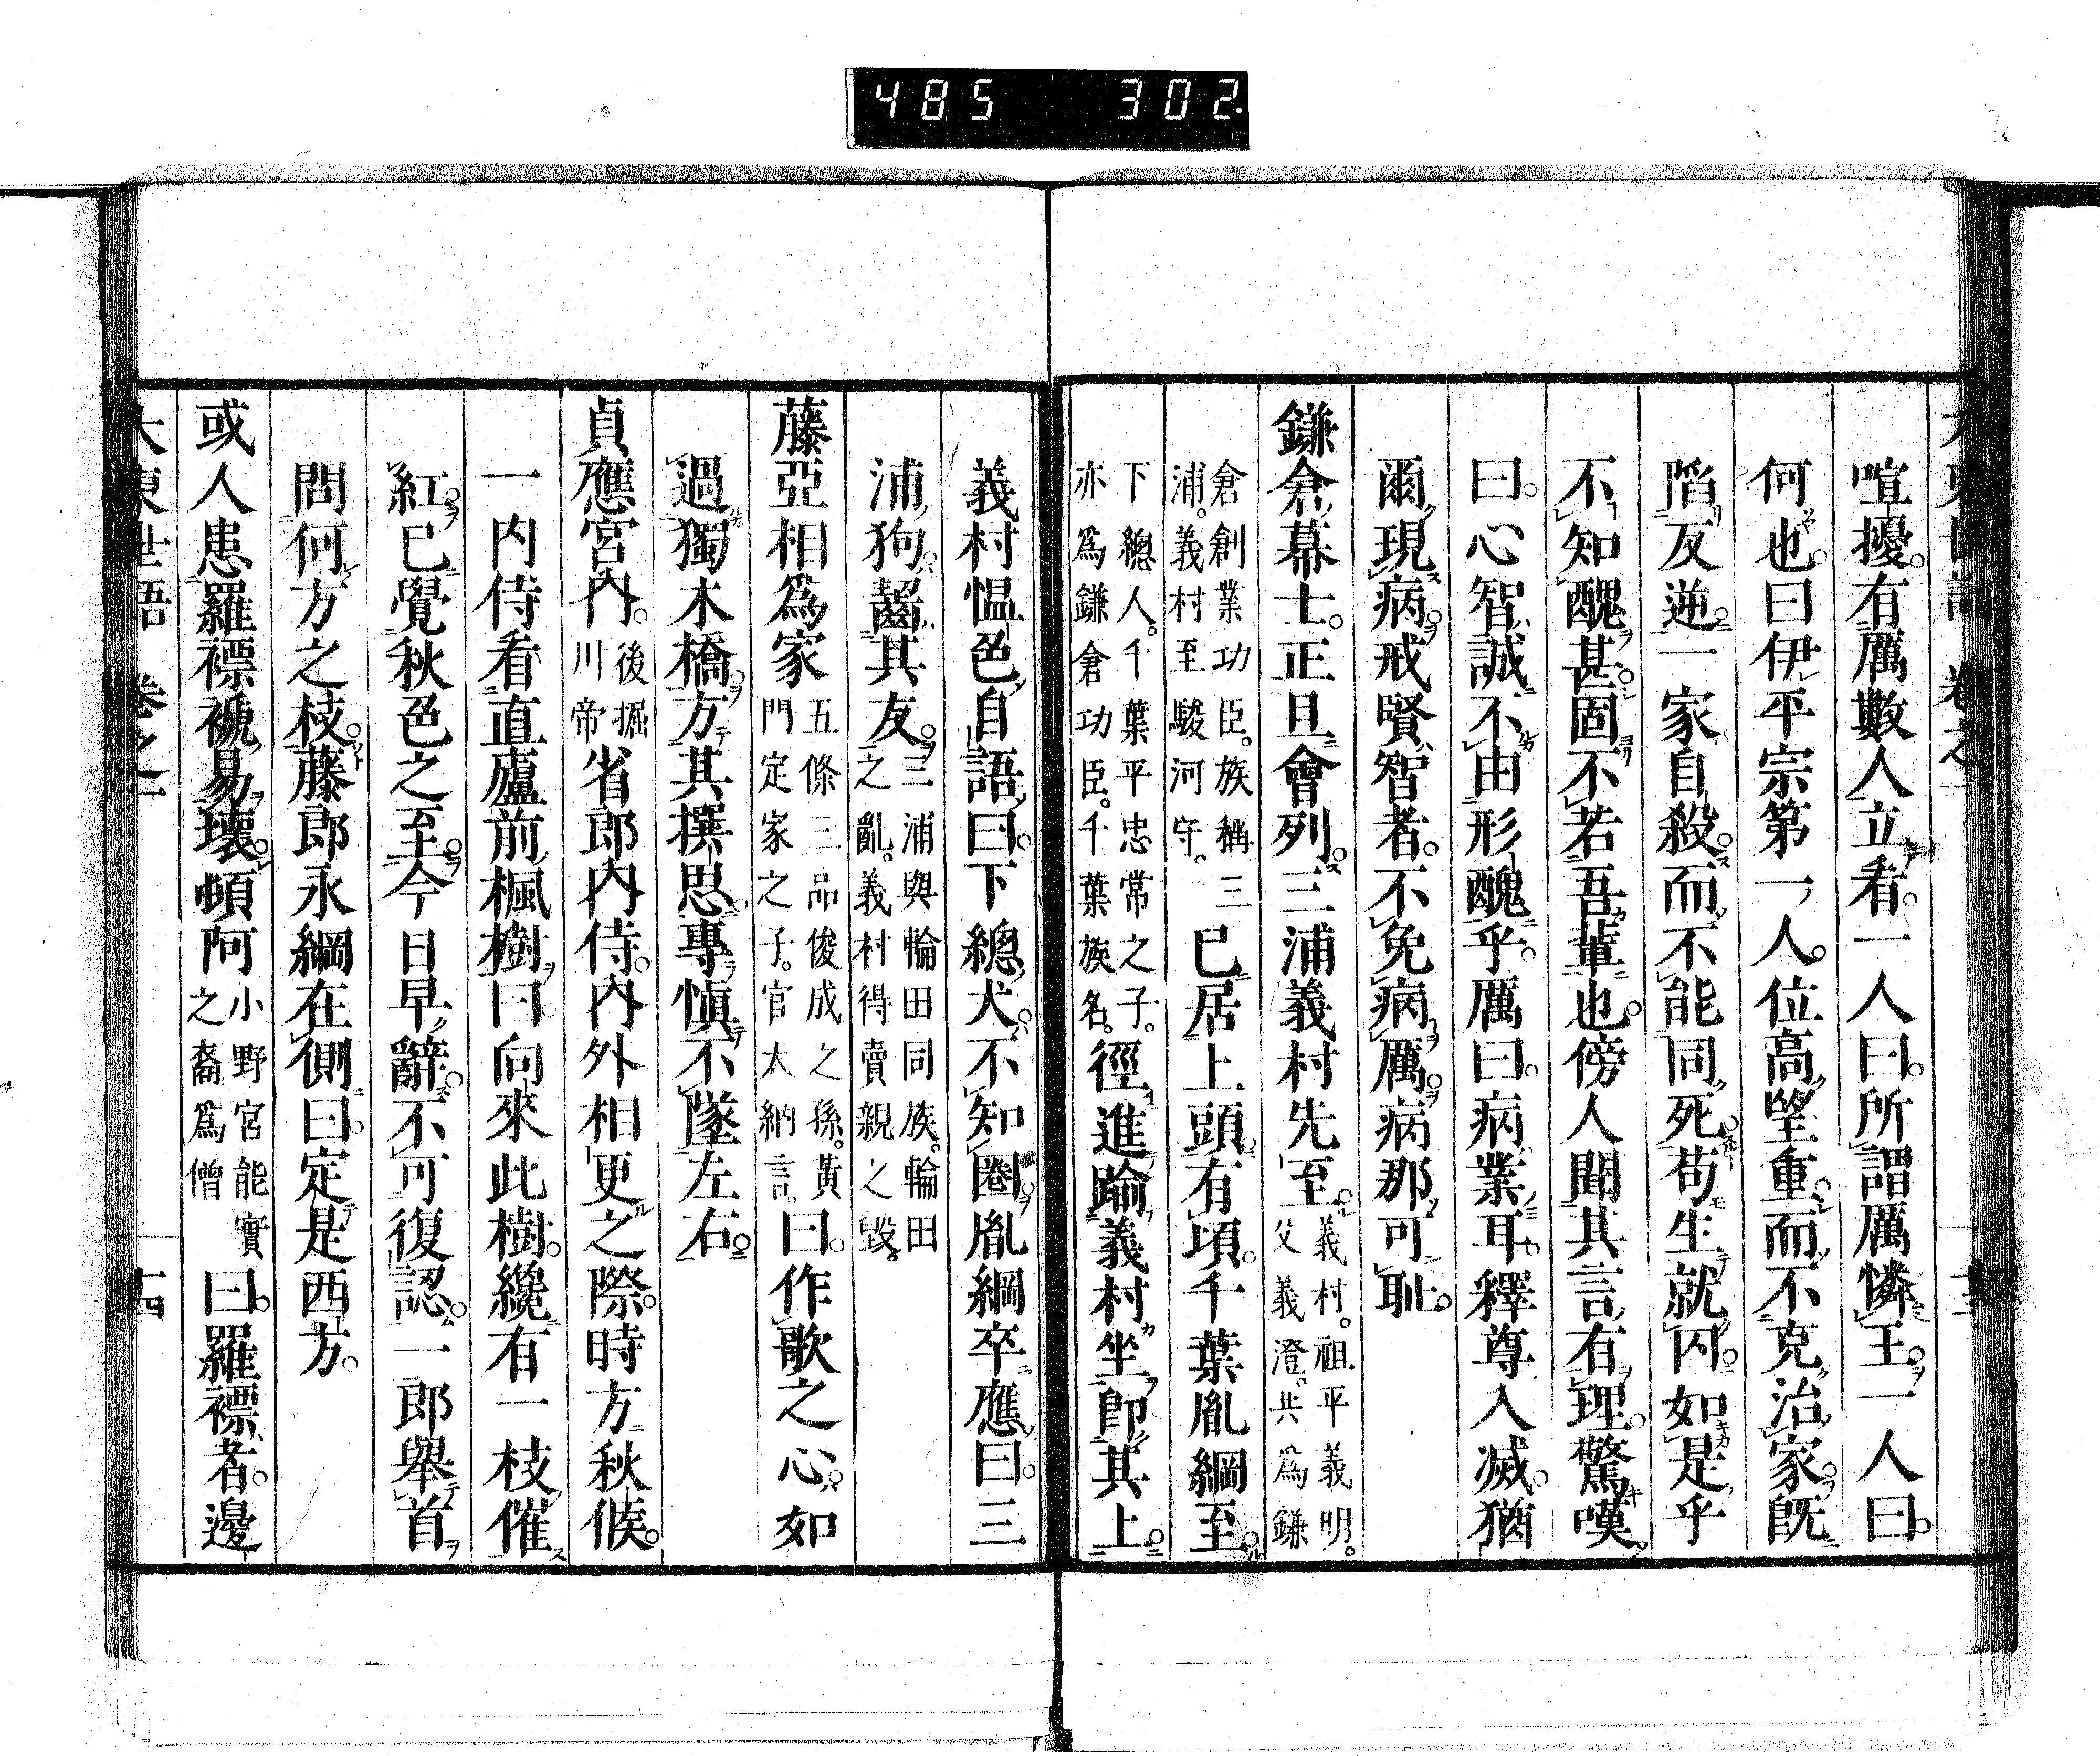 485 302.
喧擾。有厲數人立看。一人曰。所謂厲憐王。一人曰。
何也。曰伊平宗第一人。位高望重。而不克治家。既
陷反逆。一家自殺。而不能同死。苟生就囚。如是乎
不知醜甚。固不若吾輩也。傍人聞其言有理。驚嘆
曰。心智誠不由形醜乎。厲曰。病業耳。釋尊入滅。猶
爾現病。戒賢智者。不免病厲。病那可恥。
鎌倉幕士。正旦會列。三浦義村先至。義村。祖平義明。父義澄。共為鎌
倉創業功臣。族稱三浦。義村至駿河守。已居上頭。有頃。千葉胤綱至。
下總人。千葉平忠常之子。亦為鎌倉功臣。千葉族名。徑進踰義村坐。即其上。
義村慍色自語曰。下總犬。不知圈。胤綱卒應曰。三
浦狗。齧其友。三浦與輪田同族。輪田之亂。義村得賣親之毀。
藤亞相為家五條三品俊成之孫。黃門定家之子。官大納言。曰。作歌之心。如
過獨木橋。方其撰思。專慎不墜左右。
貞應宮內。後堀川帝省郎內侍。內外相更之際。時方秋候。
一內侍看直廬前楓樹曰。向來此樹。纔有一枝催
紅。已覺秋色之至。今日早辭。不可復認。一郎舉首
問。何方之枝。藤郎永綱在側曰。定是西方。
或人患羅褾褫易壞。頓阿小野宮能實之裔為僧曰。羅褾者。邊
大東世語 卷之二 十四